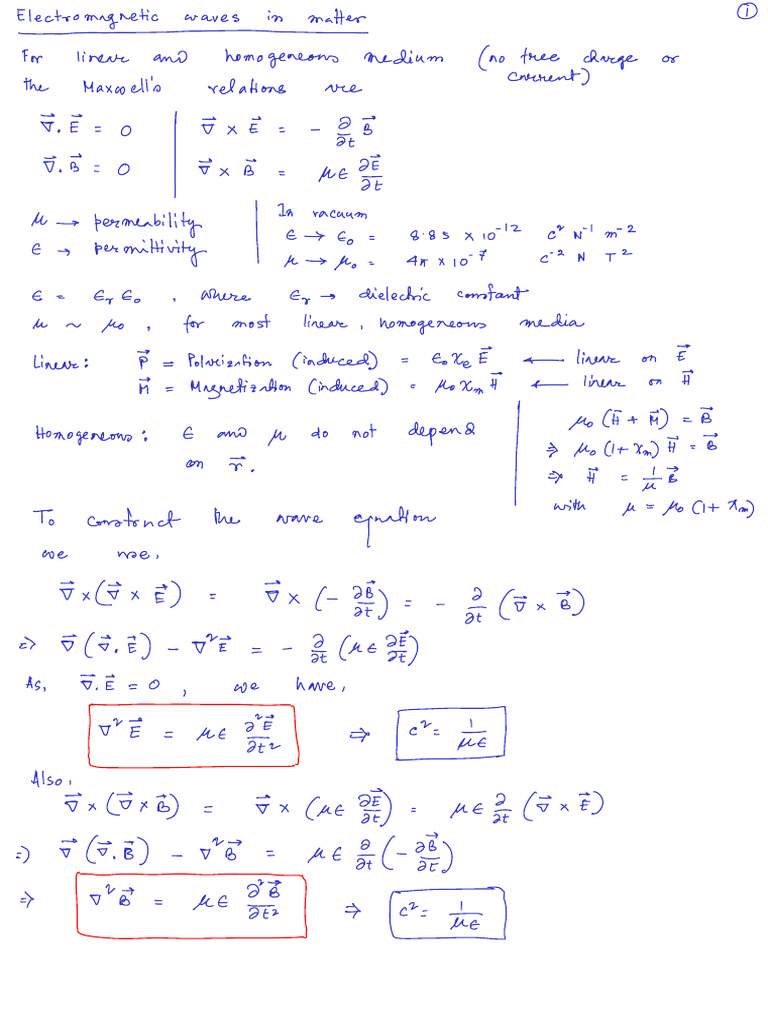 Electromagnetic waves in matter
①
For linear and homogeneous medium (no free charge or current)
the Maxwell's relations are
∇⃗. E⃗ = 0 | ∇⃗ × E⃗ = - ∂/∂t B⃗
∇⃗. B⃗ = 0 | ∇⃗ × B⃗ = μϵ ∂E⃗/∂t
μ → permeability
ϵ → permittivity
In vacuum
ϵ → ϵ₀ = 8.85 × 10⁻¹² C² N⁻¹ m⁻²
μ → μ₀ = 4π × 10⁻⁷ C⁻² N T²
ϵ = ϵᵣ ϵ₀ , where ϵᵣ → dielectric constant
μ ~ μ₀ , for most linear, homogeneous media
Linear: P⃗ = Polarization (induced) = ϵ₀ χₑ E⃗ ← linear on E⃗
M⃗ = Magnetization (induced) = μ₀ χₘ H⃗ ← linear on H⃗
Homogeneous: ϵ and μ do not depend
on r⃗.
μ₀ (H⃗ + M⃗) = B⃗
⇒ μ₀ (1 + χₘ) H⃗ = B⃗
⇒ H⃗ = 1/μ B⃗
with μ = μ₀ (1 + χₘ)
To construct the wave equation
we use,
∇⃗ × (∇⃗ × E⃗) = ∇⃗ × (- ∂B⃗/∂t) = - ∂/∂t (∇⃗ × B⃗)
⇒ ∇⃗ (∇⃗. E⃗) - ∇² E⃗ = - ∂/∂t (μϵ ∂E⃗/∂t)
As, ∇⃗. E⃗ = 0 , we have,
∇² E⃗ = μϵ ∂²E⃗/∂t² ⇒ c² = 1/μϵ
Also,
∇⃗ × (∇⃗ × B⃗) = ∇⃗ × (μϵ ∂E⃗/∂t) = μϵ ∂/∂t (∇⃗ × E⃗)
⇒ ∇⃗ (∇⃗. B⃗) - ∇² B⃗ = μϵ ∂/∂t (- ∂B⃗/∂t)
⇒ ∇² B⃗ = μϵ ∂²B⃗/∂t² ⇒ c² = 1/μϵ